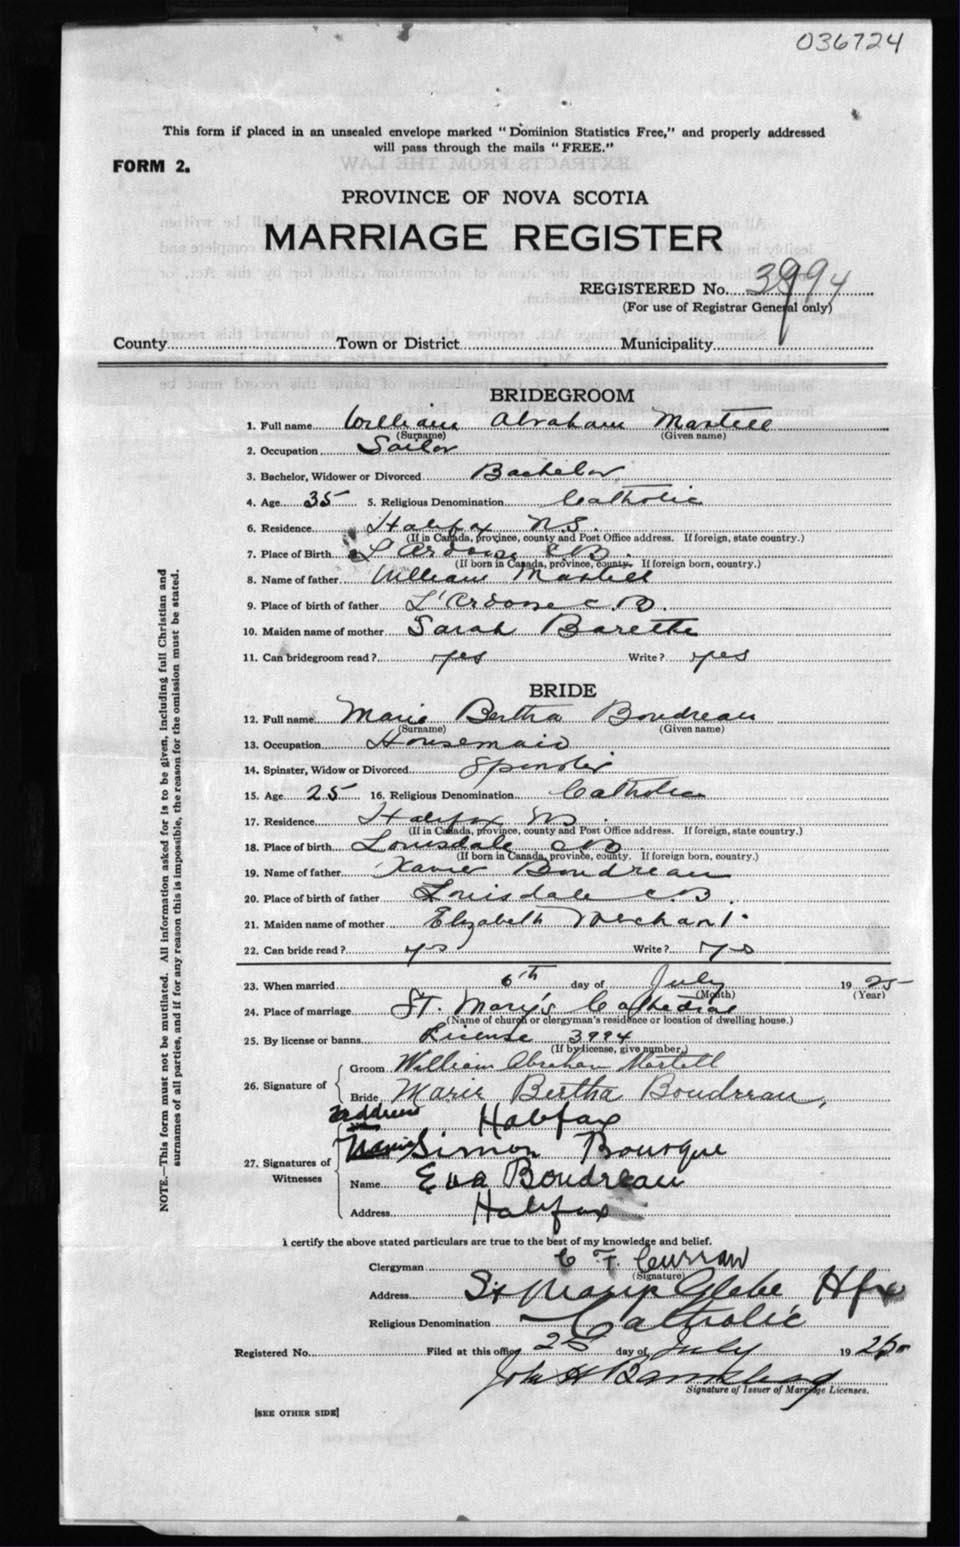 036724
This form if placed in an unsealed envelope marked "Dominion Statistics Free," and properly addressed
will pass through the mails "FREE."
FORM 2.
PROVINCE OF NOVA SCOTIA
MARRIAGE REGISTER
REGISTERED No. 3994
(For use of Registrar General only)
County Town or District Municipality
BRIDEGROOM
1. Full name William Abraham Martell
(Surname) (Given name)
2. Occupation Sailor
3. Bachelor, Widower or Divorced Bachelor
4. Age 35 5. Religious Denomination Catholic
6. Residence Halifax NS.
(If in Canada, province, county and Post Office address. If foreign, state country.)
7. Place of Birth L'Ardoise C B.
(If born in Canada, province, county. If foreign born, country.)
8. Name of father William Martell
9. Place of birth of father L'Ardoise C.B.
10. Maiden name of mother Sarah
11. Can bridegroom read? yes Write? yes
BRIDE
12. Full name Marie Bertha Boudreau
(Surname) (Given name)
13. Occupation Housemaid
14. Spinster, Widow or Divorced Spinster
15. Age 25 16. Religious Denomination Catholic
17. Residence Halifax NS.
(If in Canada, province, county and Post Office address. If foreign, state country.)
18. Place of birth Louisdale CB.
(If born in Canada, province, county. If foreign born, country.)
19. Name of father Xavier Boudreau
20. Place of birth of father Louisdale C.B.
21. Maiden name of mother Elizabeth
22. Can bride read? yes Write? yes
23. When married 6th day of July 1925
(Month) (Year)
24. Place of marriage St. Mary's Cathedral
(Name of church or clergyman's residence or location of dwelling house.)
25. By license or banns License 3994
(If by license, give number.)
26. Signature of Groom William Abraham Martell
Bride Marie Bertha Boudreau,
address Halifax
27. Signatures of Witnesses Name Simon Bourque
Name Eva Boudreau
Address Halifax
I certify the above stated particulars are true to the best of my knowledge and belief.
Clergyman C F. Curran
(Signature)
Address St Marys Glebe Hfx
Religious Denomination Catholic
Registered No. Filed at this office 25 day of July 1925
John H
Signature of Issuer of Marriage Licenses.
[SEE OTHER SIDE]
NOTE.—This form must not be mutilated. All information asked for is to be given, including full Christian and
surnames of all parties, and if for any reason this is impossible, the reason for the omission must be stated.